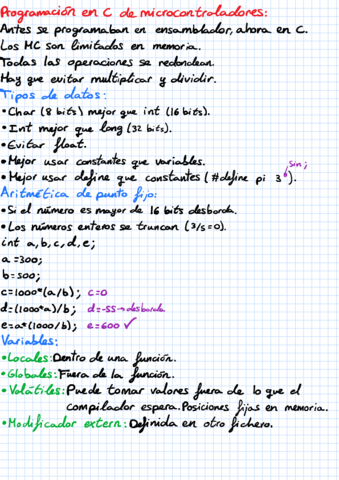 Programación en C de microcontroladores:
Antes se programaban en ensamblador, ahora en C.
Los MC son limitados en memoria.
Todas las operaciones se redondean.
Hay que evitar multiplicar y dividir.
Tipos de datos:
• Char (8 bits) mejor que int (16 bits).
• Int mejor que long (32 bits).
• Evitar float.
• Mejor usar constantes que variables.
sin ;
• Mejor usar define que constantes (#define pi 3).
Aritmética de punto fijo:
• Si el número es mayor de 16 bits desborda.
• Los números enteros se truncan (3/5=0).
int a, b, c, d, e;
a = 300;
b = 500;
c=1000*(a/b); c=0
d=(1000*a)/b; d=-55→desborda
e=a*(1000/b); e=600 ✓
Variables:
• Locales: Dentro de una función.
• Globales: Fuera de la función.
• Volátiles: Puede tomar valores fuera de lo que el
compilador espera. Posiciones fijas en memoria.
• Modificador extern: Definida en otro fichero.